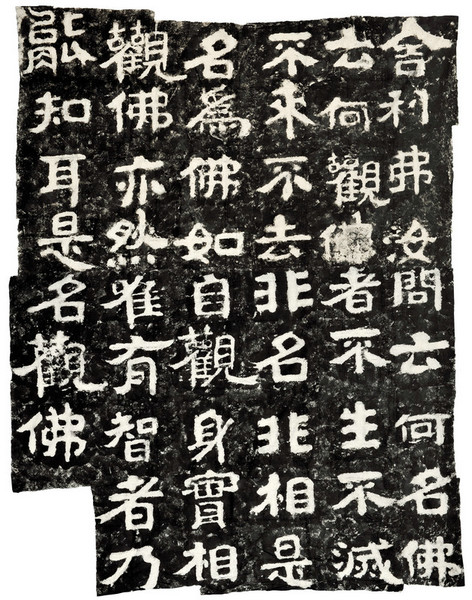 舍利弗汝問云何名佛
云何觀佛者不生不滅
不來不去非名非相是
名為佛如自觀身實相
觀佛亦然唯有智者乃
能知耳是名觀佛